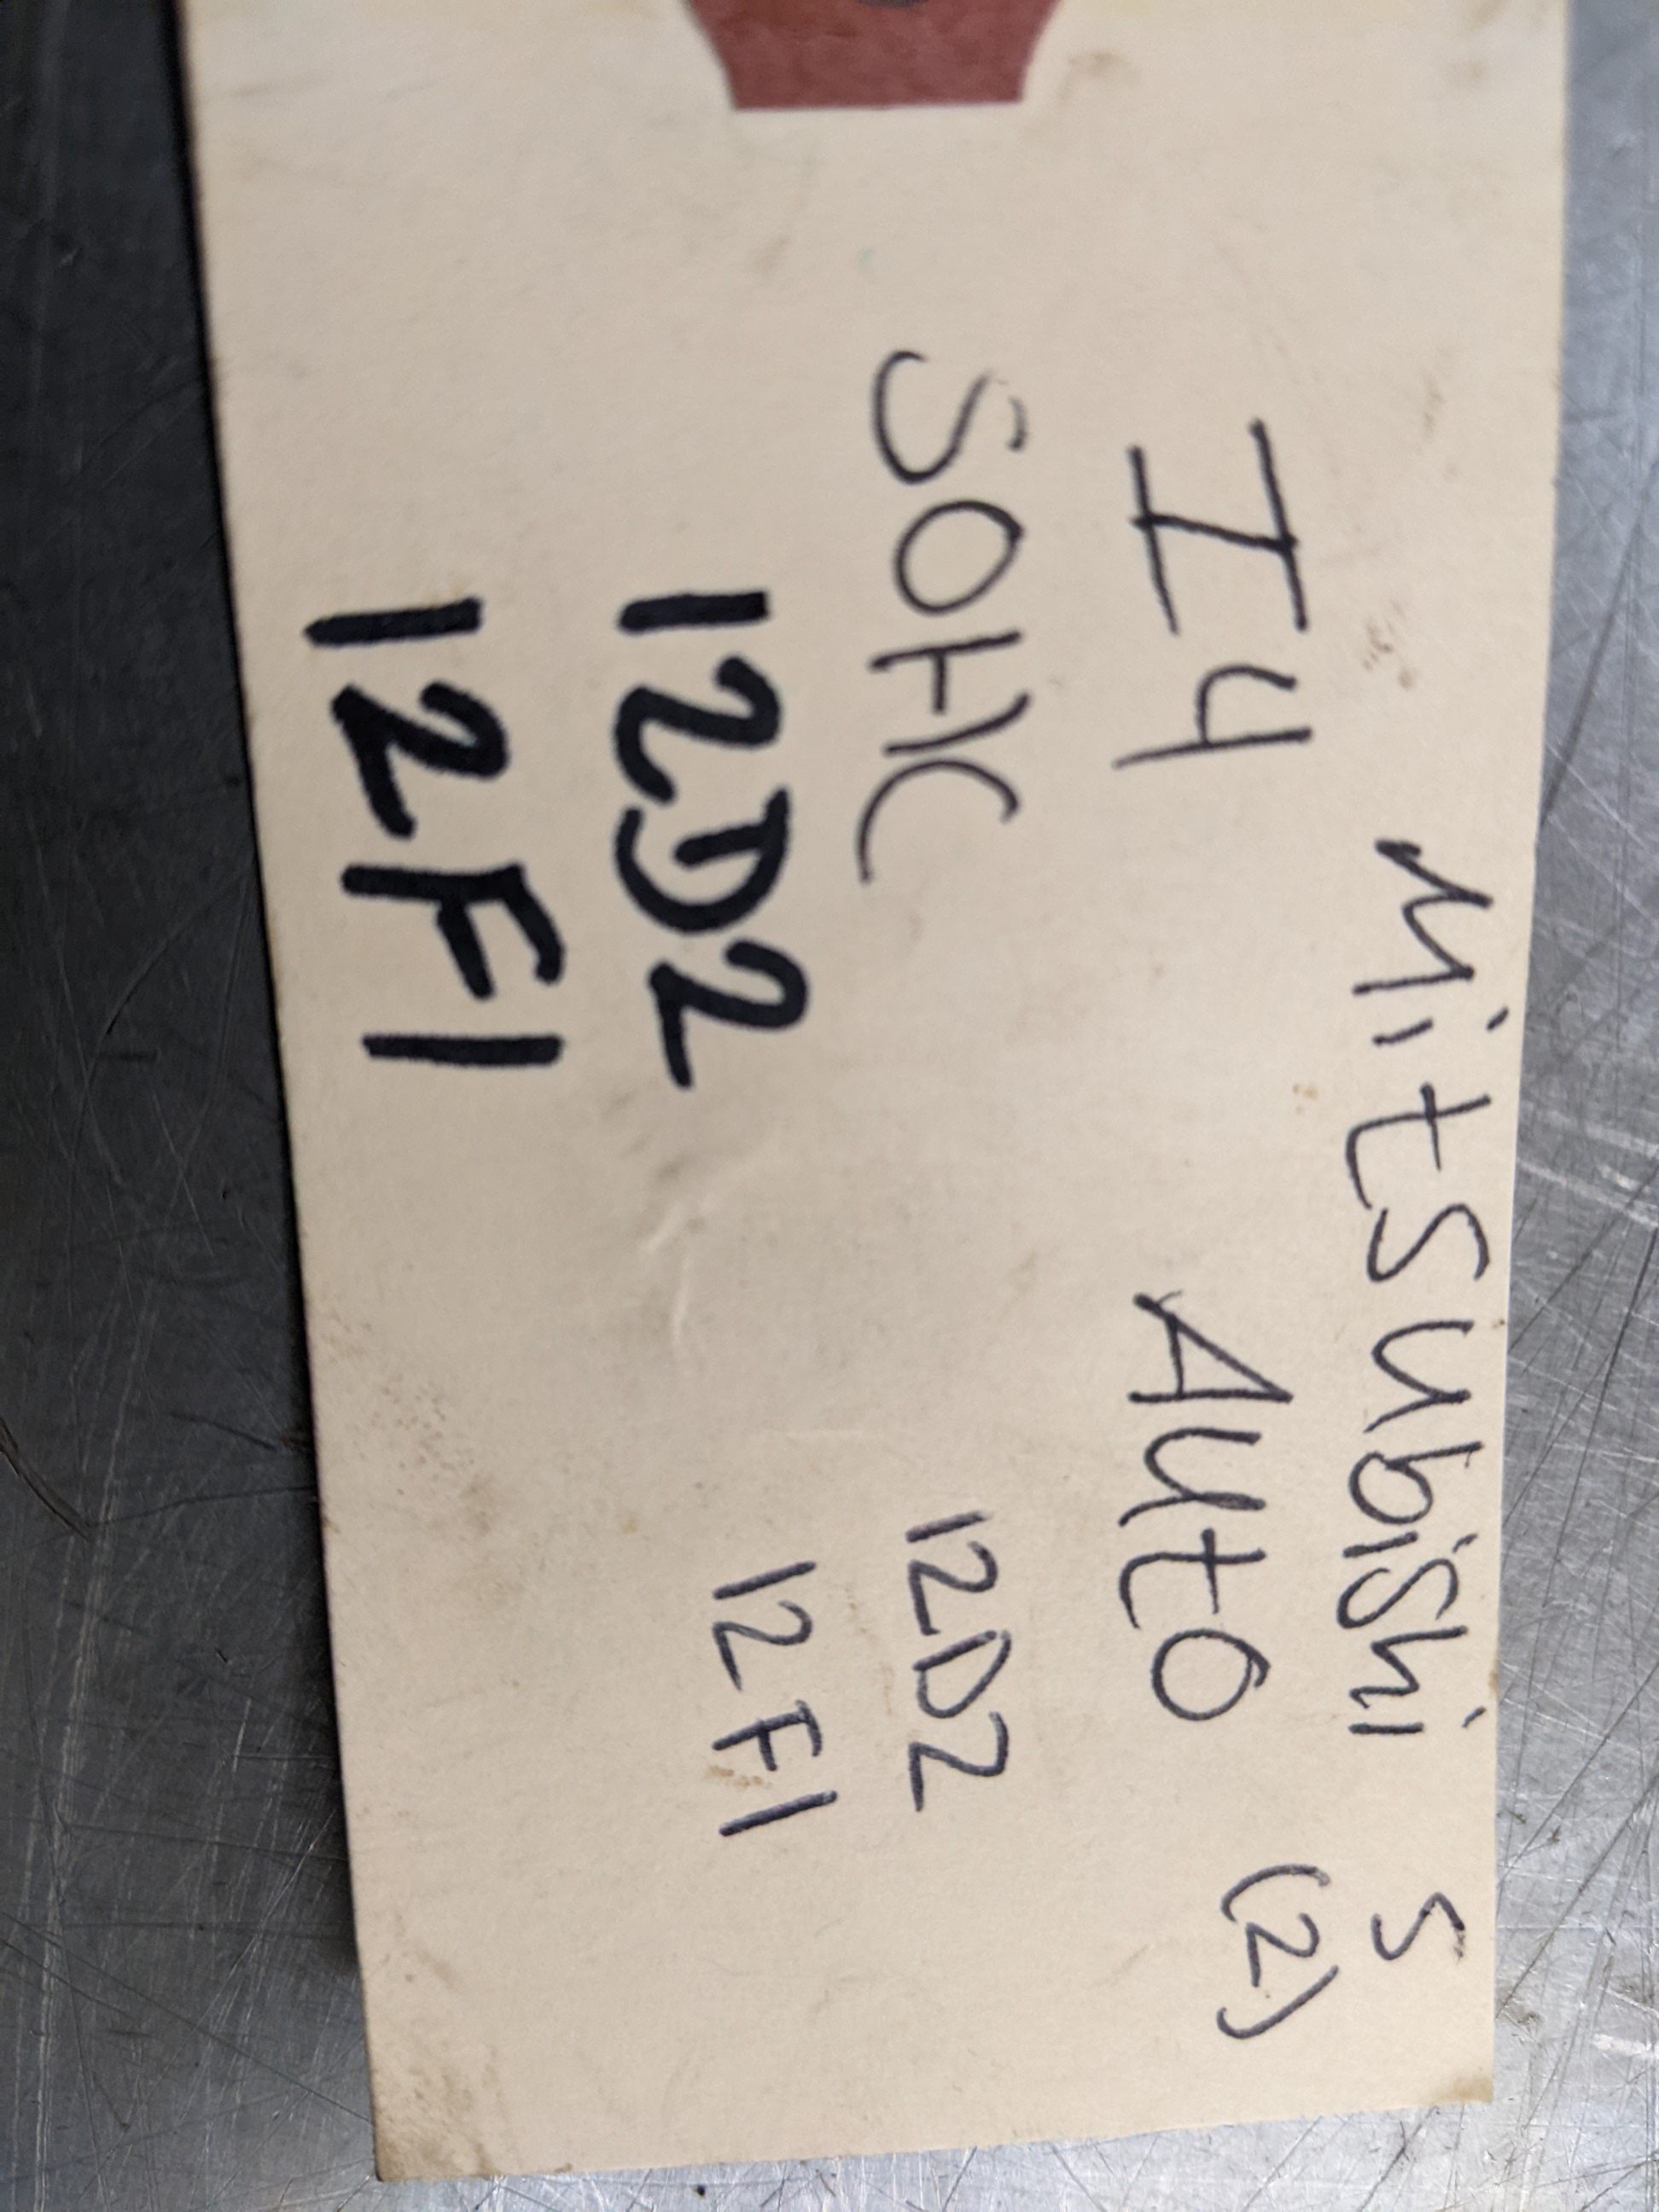 Mitsubishi S
I4 Auto (2)
SOHC 12D2
12D2 12F1
12F1